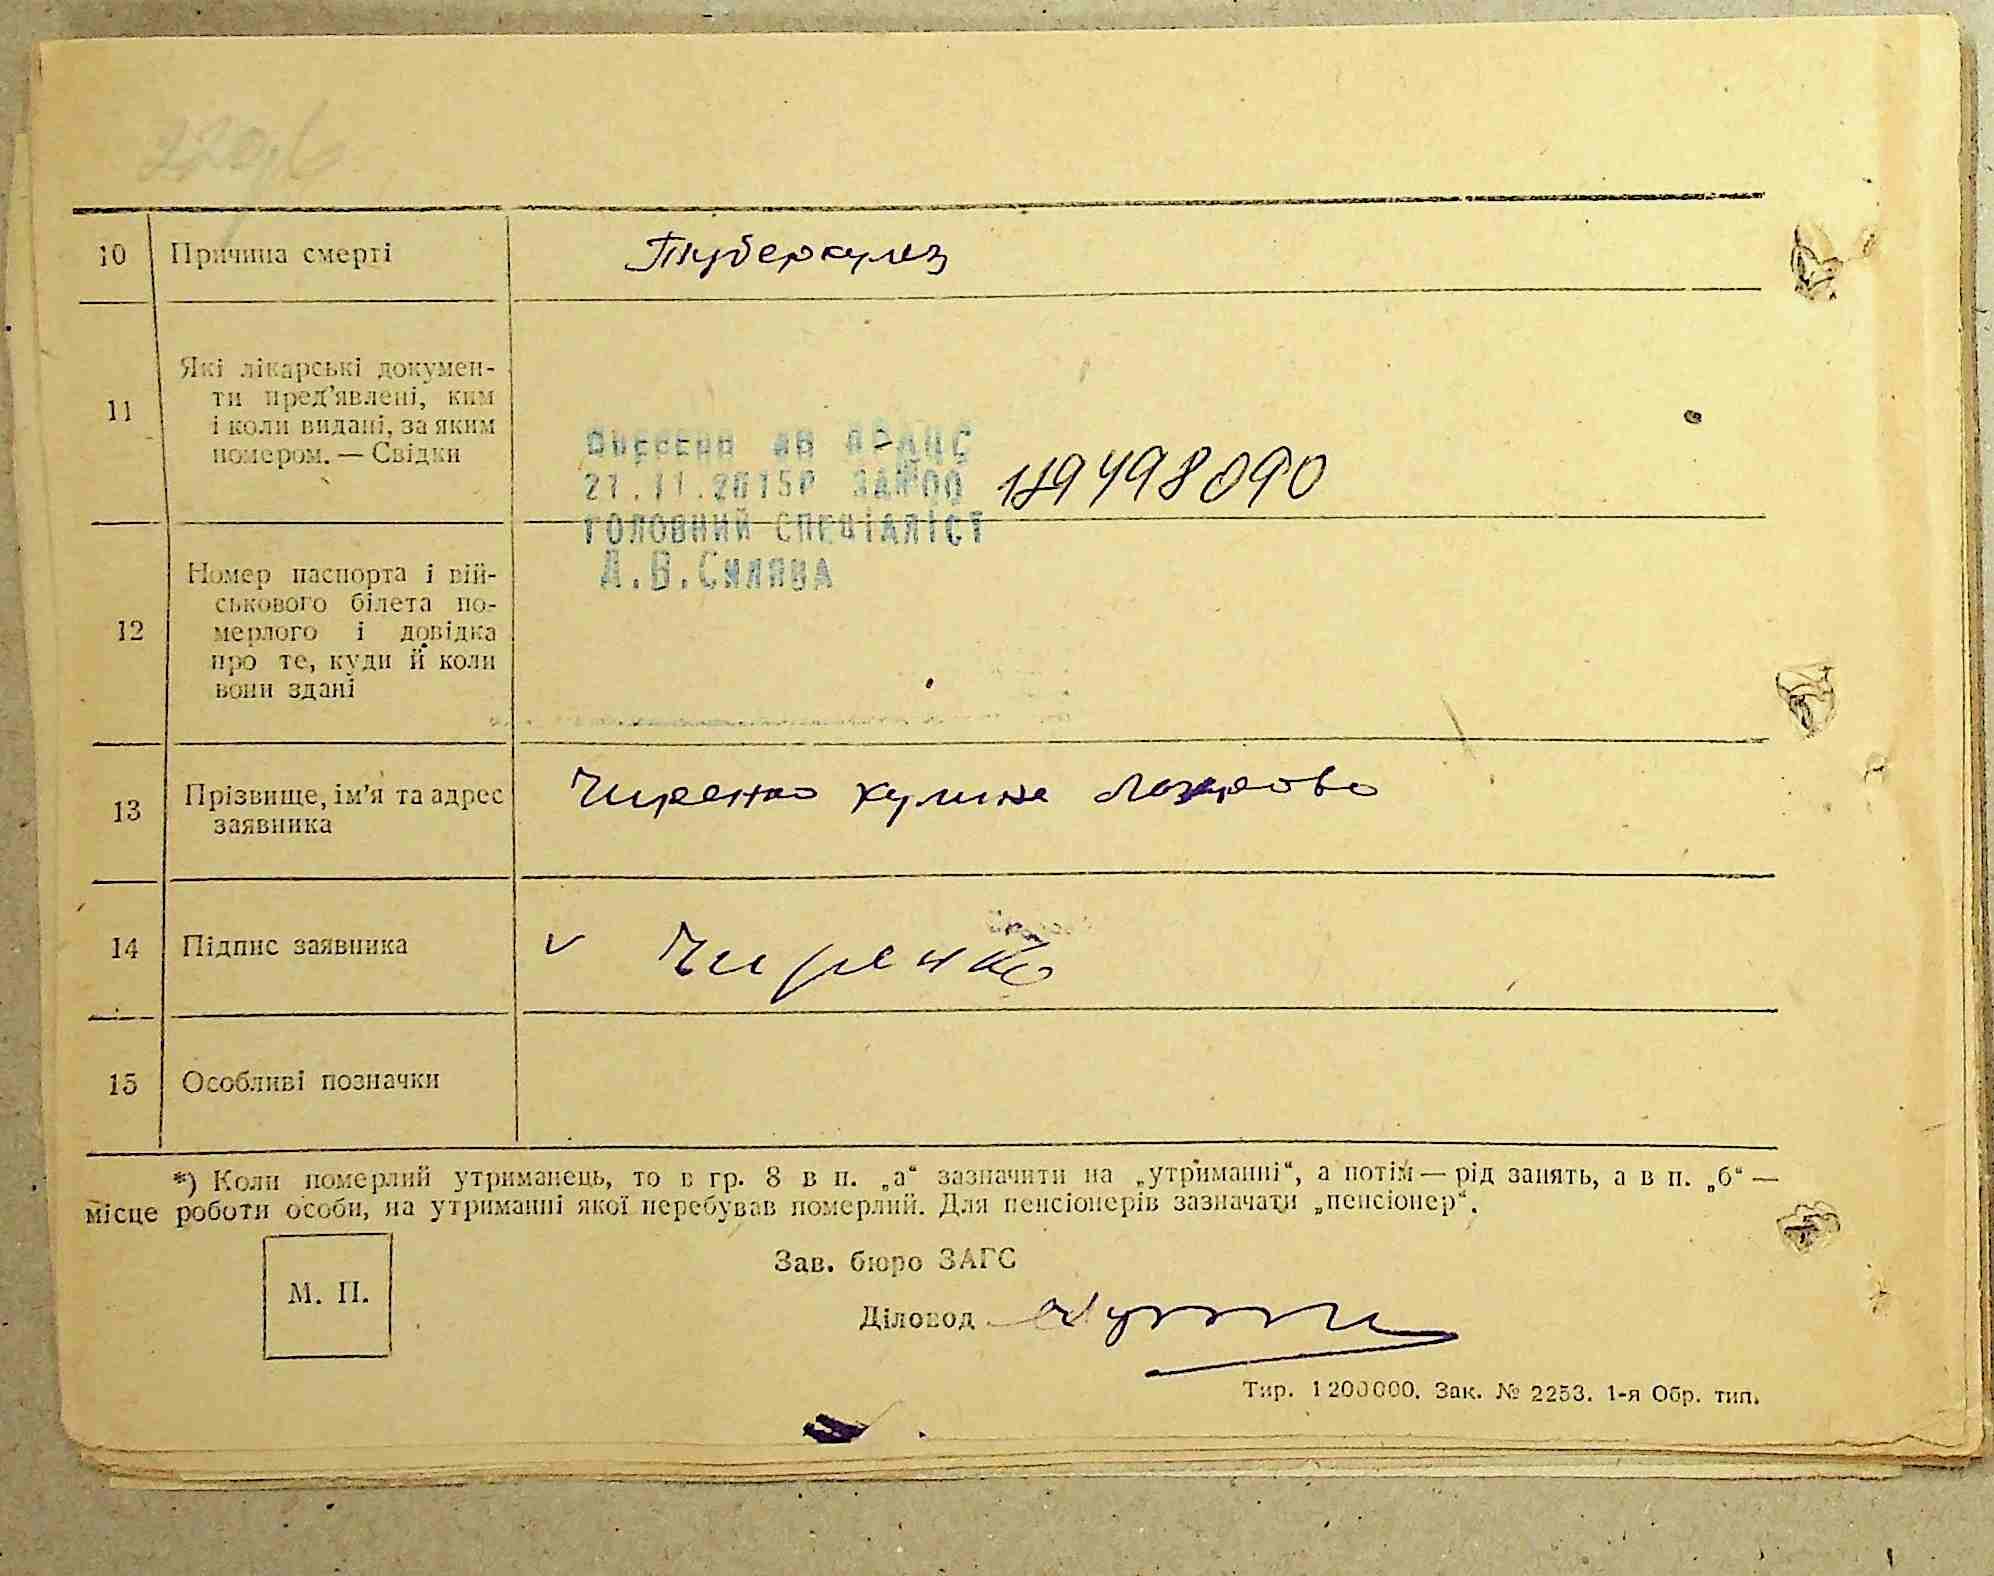 10 Причина смерті Туберкулез
11 Які лікарські докумен-
ти пред'явлені, ким
і коли видані, за яким
номером. — Свідки
21.11.2015р ЗА №00 119498090
ГОЛОВНИЙ СПЕЦІАЛІСТ
12 Номер паспорта і вій-
ськового білета по-
мерлого і довідка
про те, куди й коли
вони здані
13 Прізвище, ім'я та адрес Чиренко Кулина Лазарова
заявника
14 Підпис заявника v Чиренко
15 Особливі позначки
*) Коли померлий утриманець, то в гр. 8 в п. „а“ зазначити на „утриманні“, а потім — рід занять, а в п. „б“ —
місце роботи особи, на утриманні якої перебував померлий. Для пенсіонерів зазначати „пенсіонер“.
Зав. бюро ЗАГС
М. П.
Діловод
Тир. 1200000. Зак. № 2253. 1-я Обр. тип.